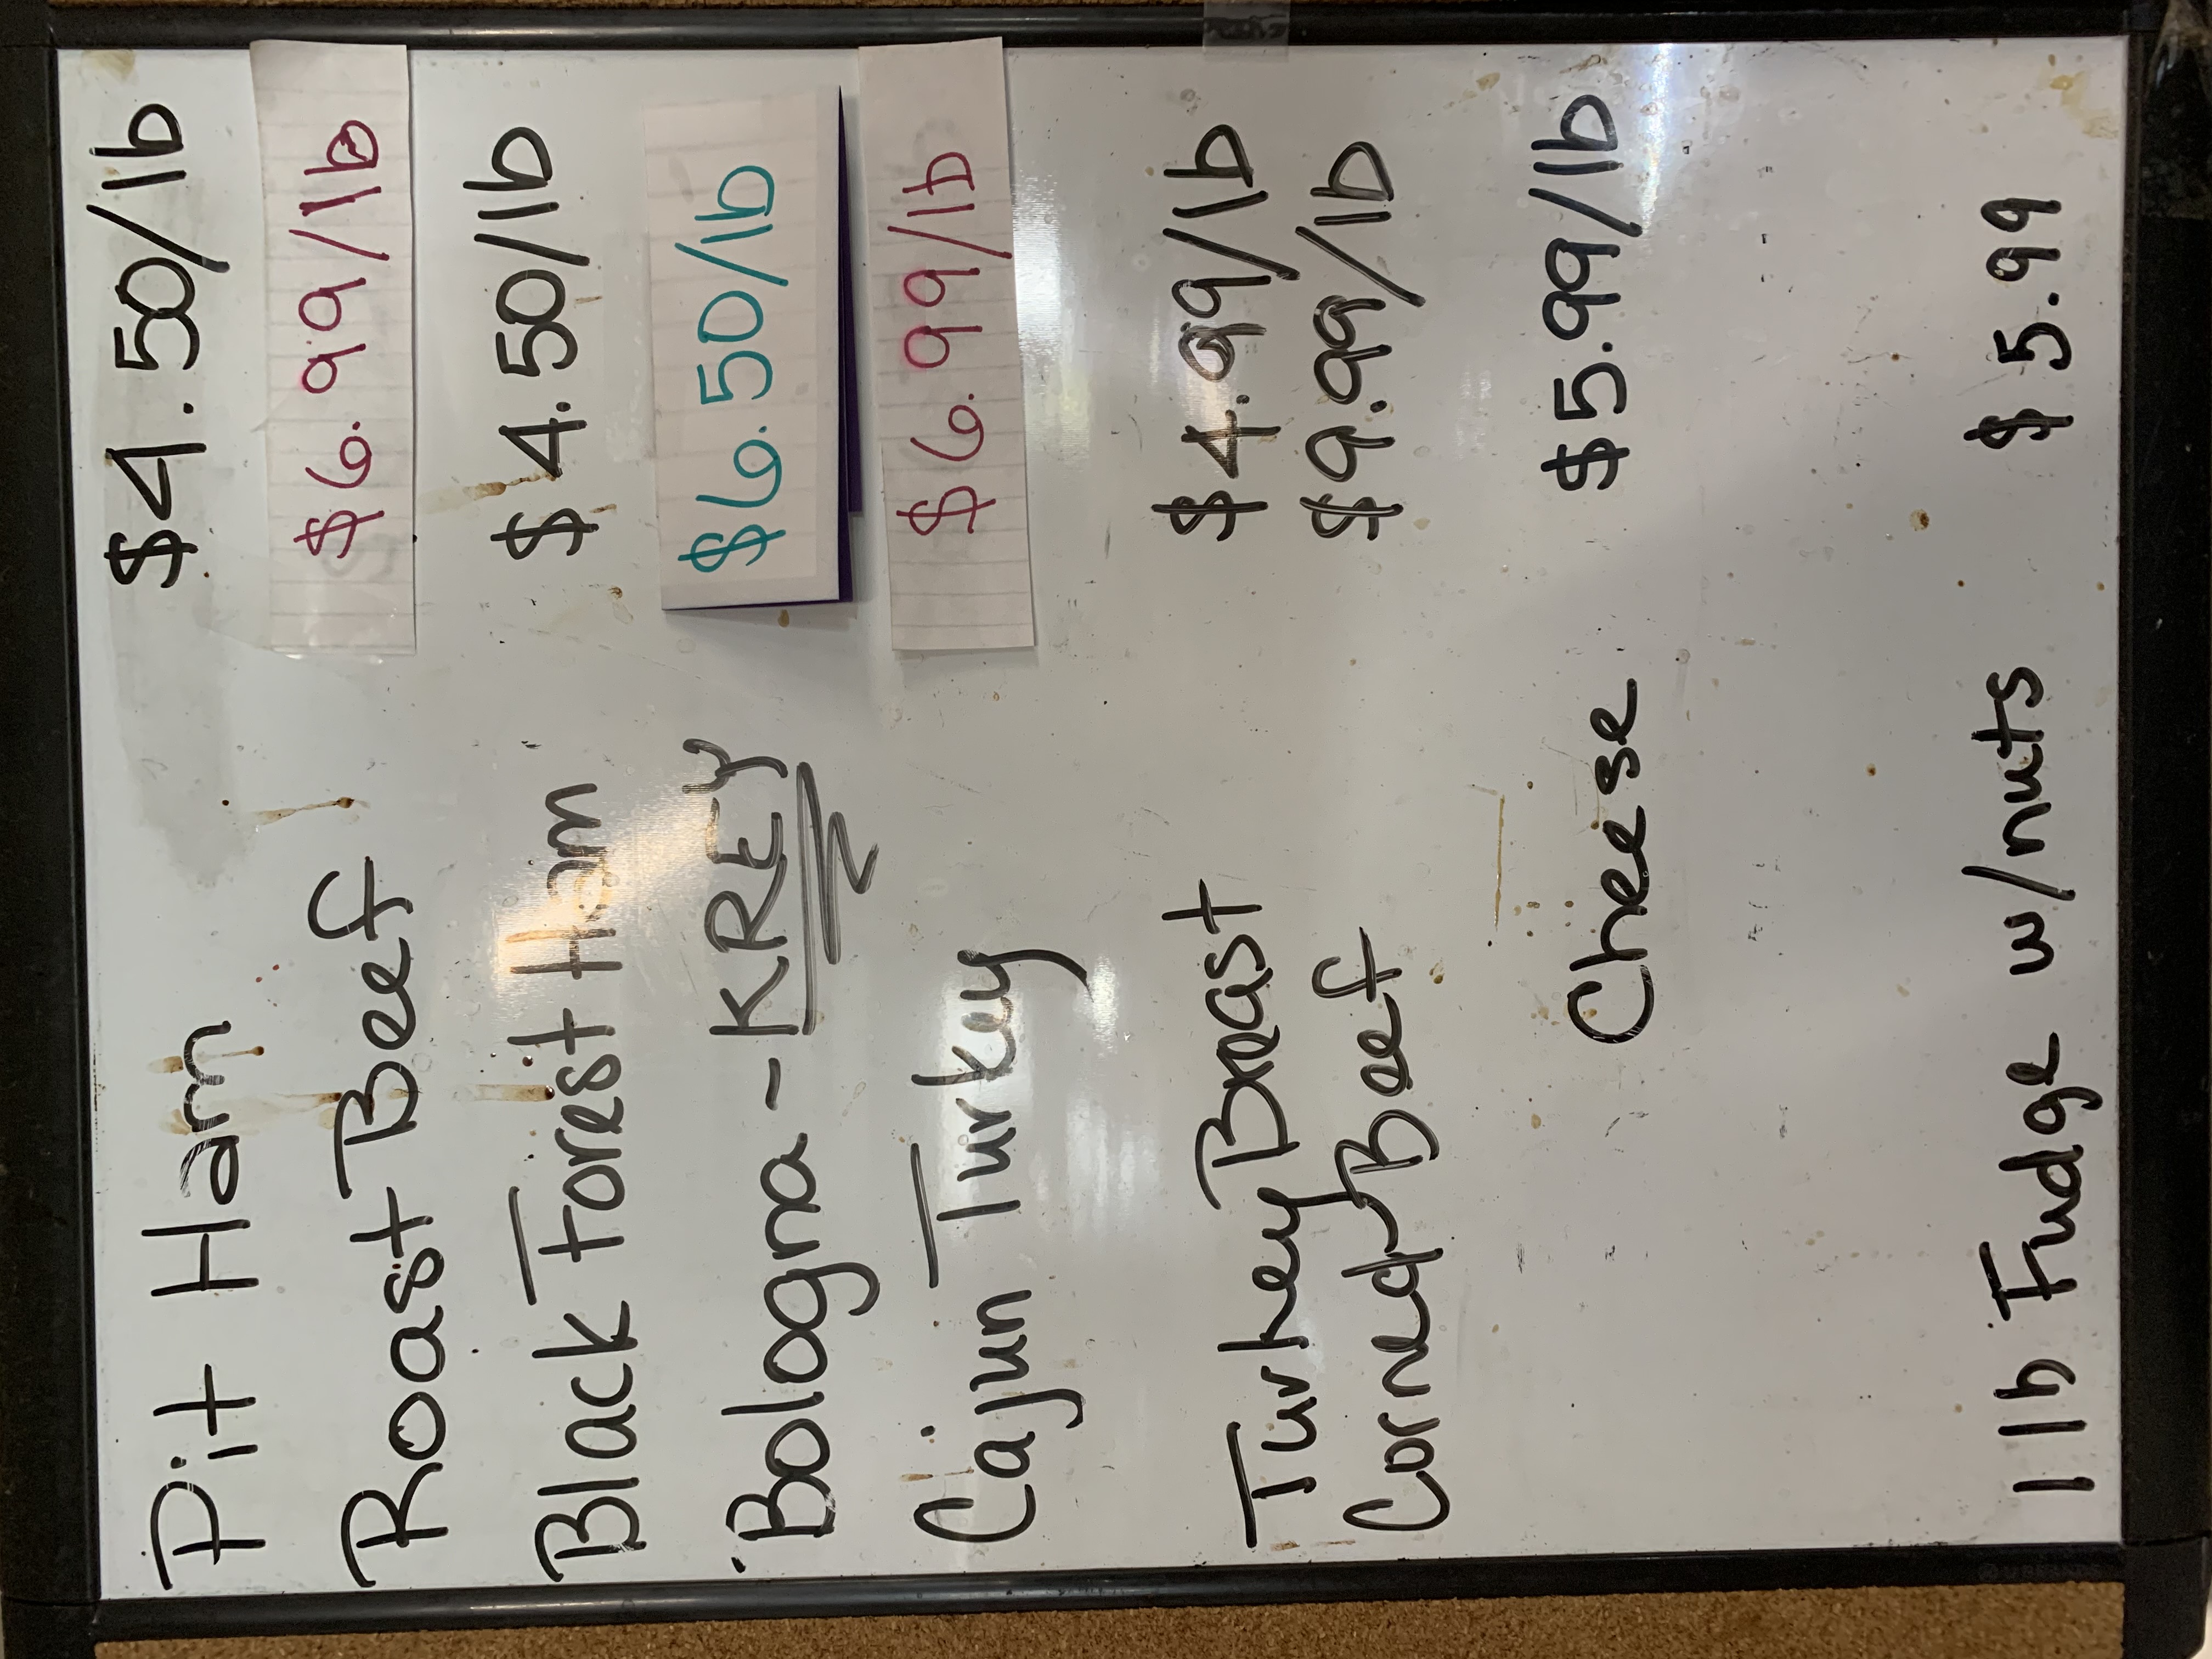 Pit Ham $4.50/lb
Roast Beef $6.99/lb
Black Forest Ham $4.50/lb
Bologna - KREY $6.50/lb
Cajun Turkey $6.99/lb
Turkey Breast $4.99/lb
Corned Beef $9.99/lb
Cheese $5.99/lb
1 lb Fudge w/nuts $5.99